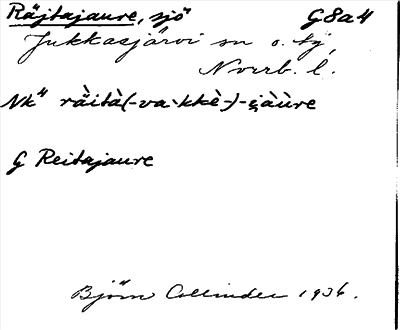 Räjtajaure, sjö G8a4
Jukkasjärvi sn o. tg,
Nverb. l.
Nk" ràità(-va`kkè-)-i̯àùre
G Reitajaure
Björn Collinder 1936.